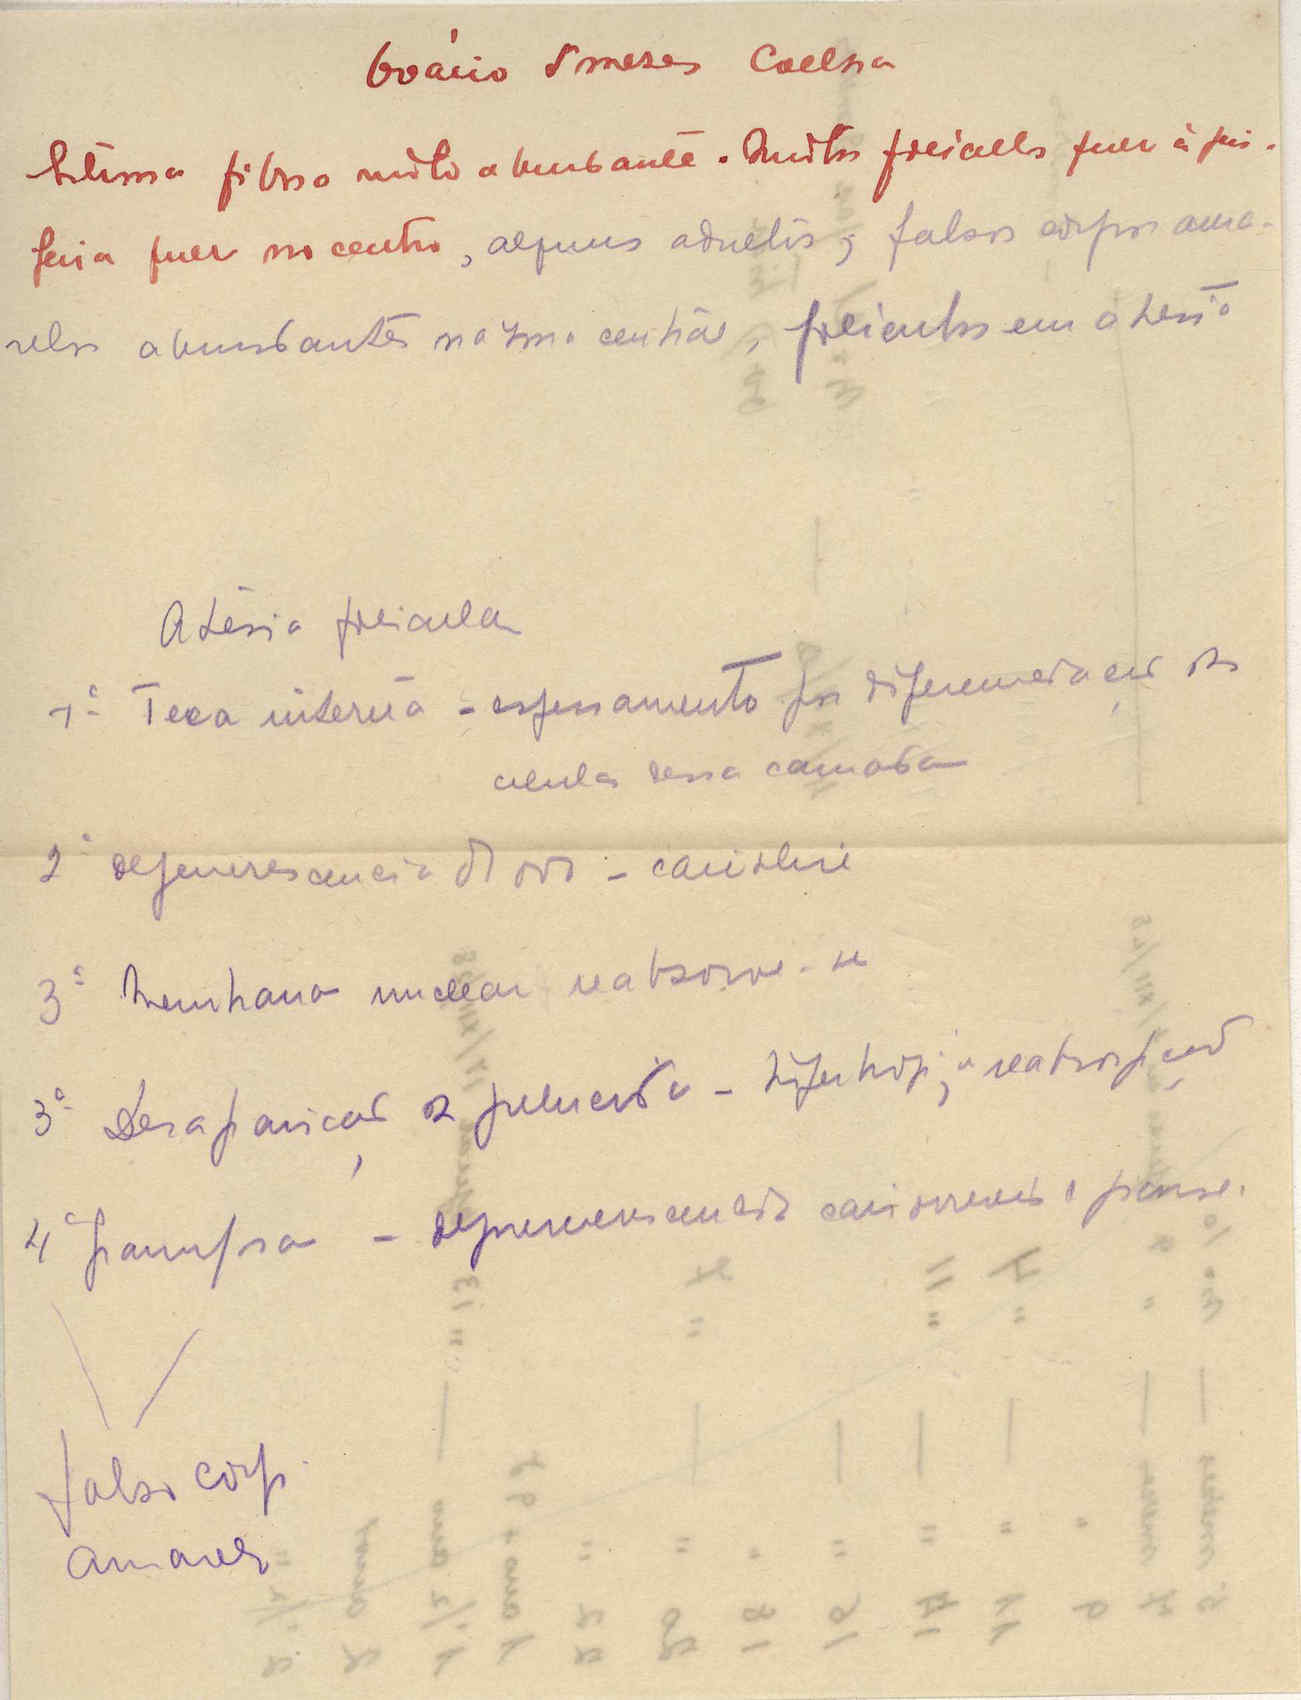 Ovário 5 meses Coelha
Estroma fibroso muito abundante. Muitos foliculos quer à peri-
feria quer no centro, alguns adultos; falsos corpos ama-
relos abundantes na zona central, foliculos em atresia
Atresia folicular
1º Teca interna - espessamento por diferenciação das
celulas dessa camada
2º degenerescencia do ovo - cariolise
3º Membrana nuclear reabsorve-se
3º Desaparição da pelucida - hipertrofia; reabsorpção
4º granulosa - degenerescencia
falso corp.
amarelo